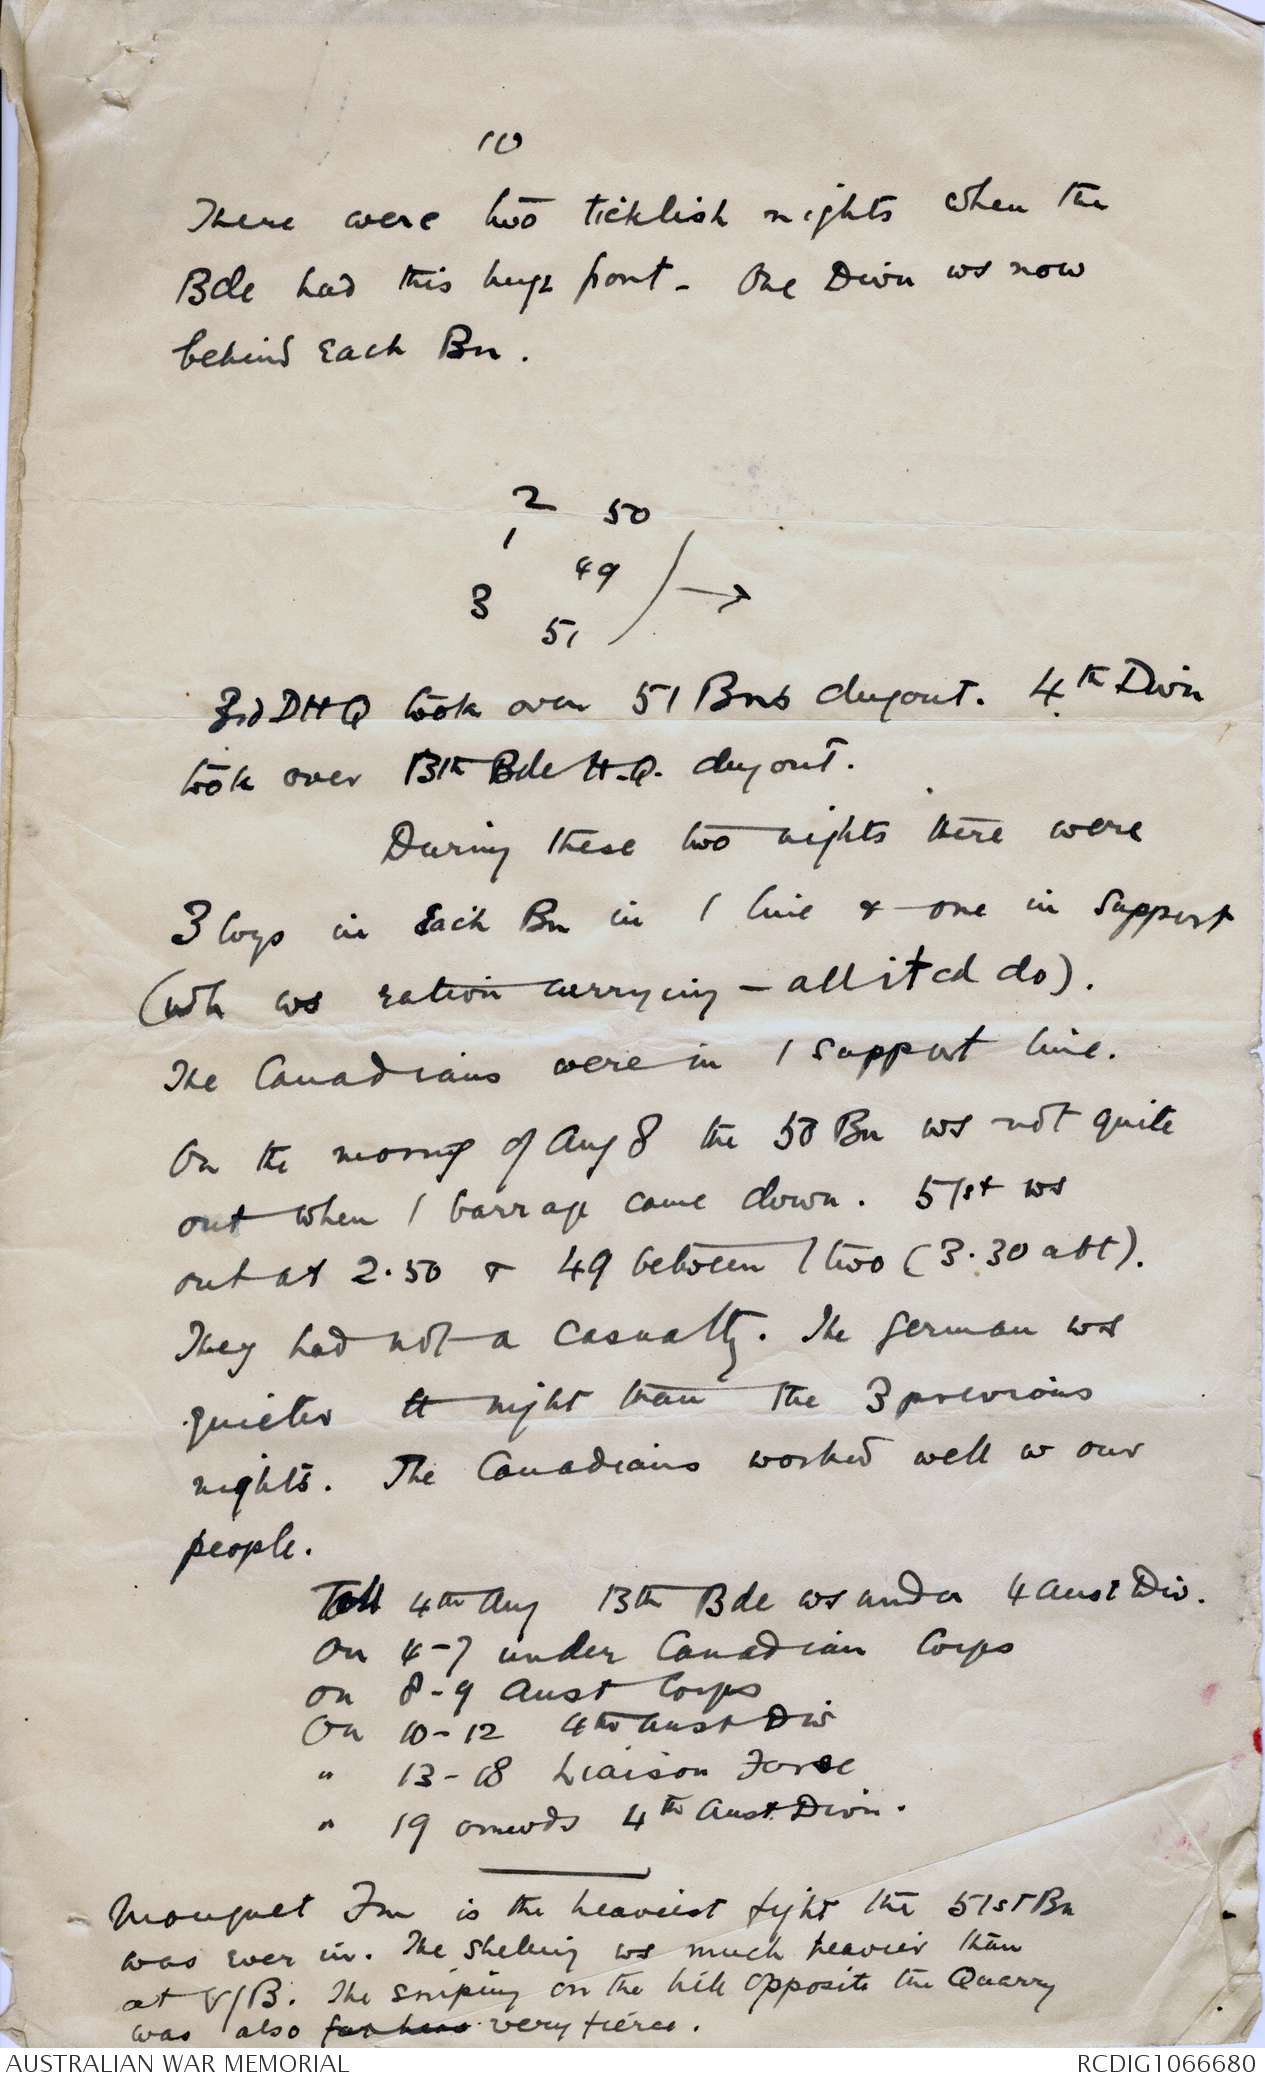 10
There were two ticklish nights when the
Bde had this huge front - One Divn ws now
behind Each Bn.
2 50
1
49
3
51
3rd DHQ took over 51 Bns dugout. 4th Divn
took over 13th Bde H.Q. dugout.
During these two nights there were
3 coys in Each Bn in / line & one in support
(wh ws ration carrying - all it cd do).
The Canadians were in / support line.
On the morng of Aug 8 the 50 Bn ws not quite
out when / barrage came down. 51st ws
out at 2.50 & 49 between / two (3.30 abt).
They had not a casualty. The German ws
quieter tt night than the 3 previous
nights. The Canadians worked well w our
people.
Till 4th Aug 13th Bde ws under 4 Aust Div.
On 4-7 under Canadian Corps
on 8-9 Aust Corps
On 10-12 4th Aust Div
" 13-18 Liaison Force
" 19 onwds 4th Aust. Divn.
Mouquet Fm is the heaviest fight the 51st Bn
was ever in. The shelling ws much heavier than
at V/B. The sniping on the hill opposite the Quarry
was also very fierce.
AUSTRALIAN WAR MEMORIAL RCDIG1066680